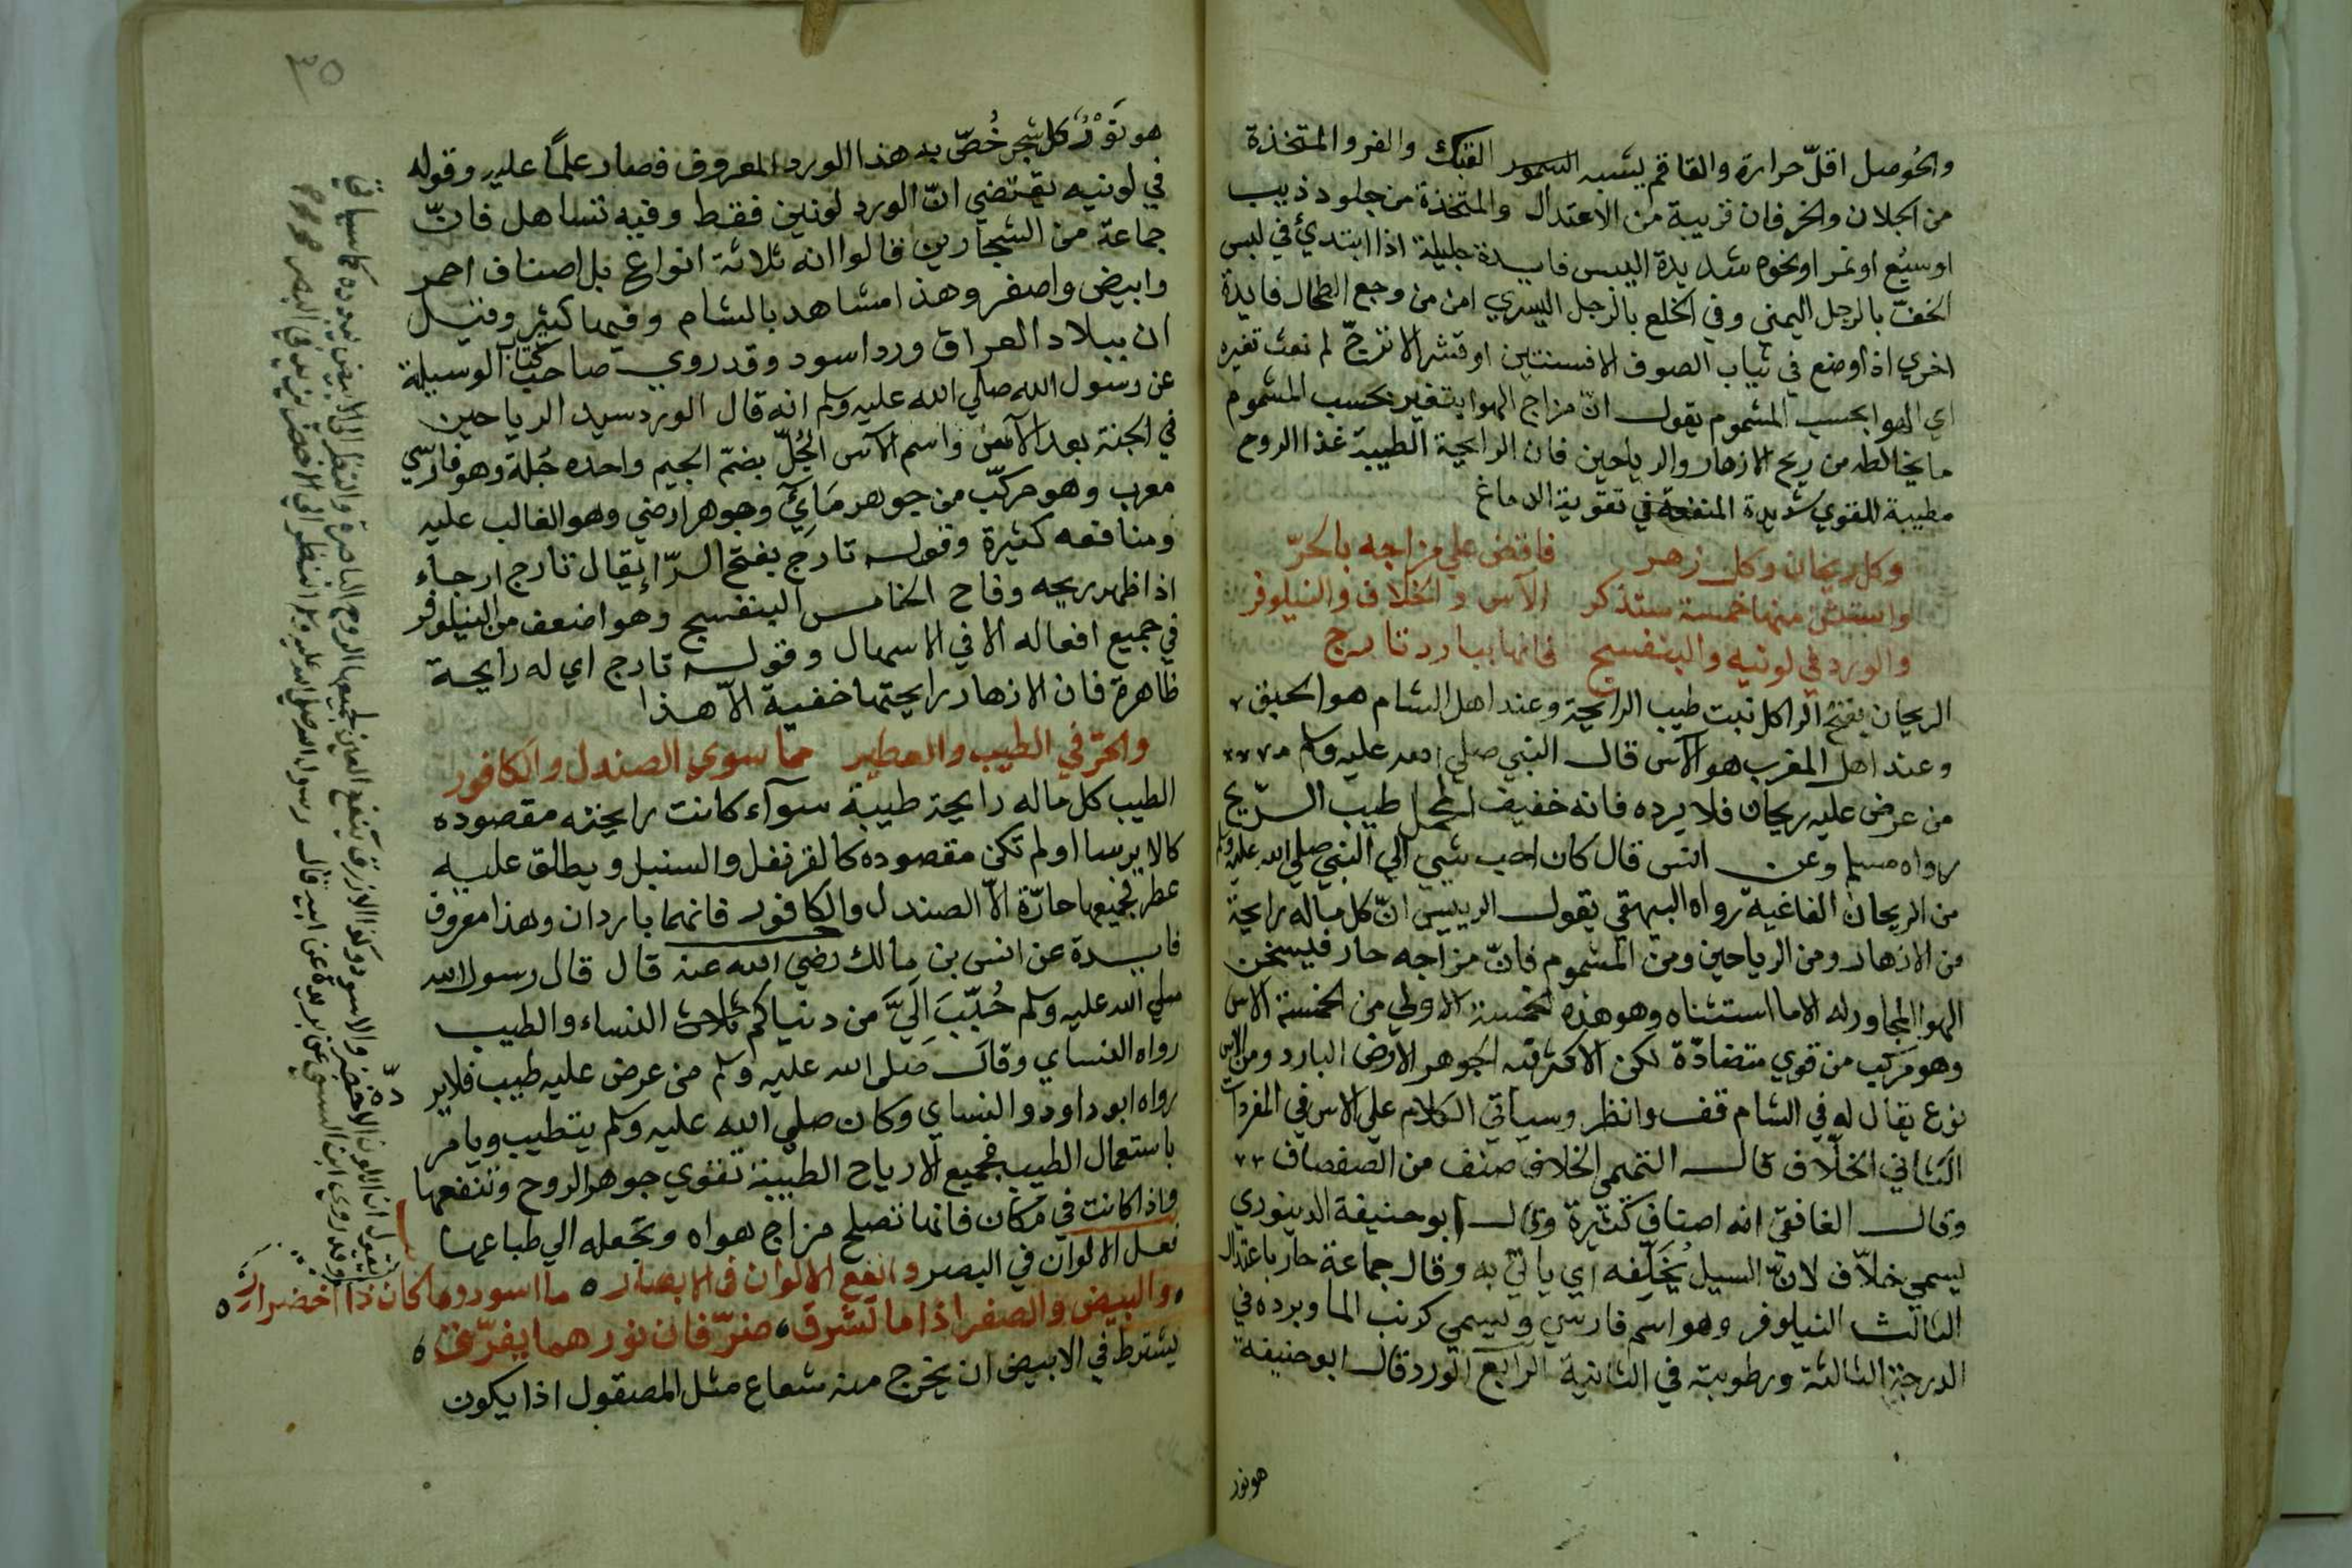 والحوصل اقلّ حرارة والقاقم يشبه السمور الفنك والفرو المتخذة
من الجلان والخرفان قريبة من الاعتدال والمتخذة من جلود ذيب
او سبُع او نمر او نحوه شديدة اليبس فايدة جليلة اذا ابتدئ في لبس
الخف بالرجل اليمني وفي الخلع بالرجل اليسري امن من وجع الطحال فايدة
اخري اذا وضع في ثياب الصوف الافسنتين او قشر الاترج لم تعث تغيره
اي الهوا بحسب المشموم يقول انّ مزاج الهوا يتغير بحسب المشموم
ما يخالطه من ريح الازهار والرياحين فان الرايحة الطيبة غذا الروح
مطيبة للقوي شديدة المنفعة في تقوية الدماغ
وكل ريحان وكل زهر فاقض علي مزاجه بالحرّ
واستثن منها خمسة ستذكر الآس والخلاف والنيلوفر
والورد في لونيه والبنفسج فانها ببارد تارج
الريحان بفتح الرا كل نبت طيب الرايحة وعند اهل الشام هو الحبق
وعند اهل المغرب هو الآس قال النبي صلي الله عليه وسلم
من عرض عليه ريحان فلا يرده فانه خفيف المحمل طيب الريح
رواه مسلم وعن انس قال كان احب شيي الي النبي صلي الله عليه وسلم
من الريحان الفاغية رواه البيهقي يقول الرييس انّ كل ماله رايحة
من الازهار ومن الرياحين ومن المشموم فانّ مزاجه حار فيسخن
الهوا المجاور له الا ما استثناه وهو هذه الخمسة الاولي من الخمسة الاس
وهو مركب من قوي متضادّة لكن الاكثر فيه الجوهر الارضي البارد ومن الاس
نوع يقال له في الشام قف وانظر وسياتي الكلام علي الاس في المفردات
الثاني الخلاف قال التميمي الخلاف صنف من الصفصاف
وقال الغافقي انه اصناف كثيرة وقال ابو حنيفة الدينوري
يسمي خلاّف لانّ السيل يُخَلّفه اي ياتي به وقال جماعة حار باعتدال
الثالث النيلوفر وهو اسم فارسي ويسمي كرنب الما وبرده في
الدرجة الثالثة ورطوبته في الثانية الرابع الورد قال ابو حنيفة
هو نور
٣٥
هو نَوْرُ كل شجر خُصّ به هذا الورد المعروف فصار علماً عليه وقوله
في لونيه يقتضي انّ الورد لونين فقط وفيه تساهل فانّ
جماعة من الشجارين قالوا انه ثلاثة انواع بل اصناف احمر
وابيض واصفر وهذا مشاهد بالشام وفيها كثير وقيل
ان ببلاد العراق ورد اسود وقد روي صاحب كتاب الوسيلة
عن رسول الله صلي الله عليه وسلم انه قال الورد سيد الرياحين
في الجنة بعد الآس واسم الآس الجُلّ بضمّ الجيم واحده جُلة وهو فارسي
معرب وهو مركّب من جوهر مَائي وجوهر ارضي وهو الغالب عليه
ومنافعه كثيرة وقوله تارج بفتح الرّا يقال تارج ارجاء
اذا ظهر ريحه وفاح الخامس البنفسج وهو اضعف من النيلوفر
في جميع افعاله الا في الاسهال وقوله تارج اي له رايحة
ظاهرة فان الازهار رايحتها خفية الاّ هذا
والحرّ في الطيب والعطير مما سوي الصندل والكافور
الطيب كل ماله رايحة طيبة سوآء كانت رايحته مقصوده
كالايرسا او لم تكن مقصوده كالقرنفل والسنبل ويطلق عليه
عطر فجميعها حارّة الاّ الصندل والكافور فانهما باردان وهذا معروف
فايدة عن انس بن مالك رضي الله عنه قال قال رسول الله
صلي الله عليه وسلم حُبّبَ اَليَّ من دنياكم ثلاث النساء والطيب
رواه النساي وقال صلي الله عليه وسلم من عرض عليه طيب فلا ير
دّه
رواه ابو داود والنساي وكان صلي الله عليه وسلم يتطيب ويامر
باستعمال الطيب فجميع الارياح الطيبة تقوي جوهر الروح وتنفعها
واذا كانت في مكان فانها تصلح مزاج هواه وتجعله الي طباعها
فعل الالوان في البصر وانفع الالوان في الابصار ه ما اسود وما كان ذا اخضرار ه
والبيض والصفر اذا ما تشرق، ضرّ فان نورهما يفرّق ه
يشترط في الابيض ان يخرج منه شعاع مثل المصقول اذا يكون